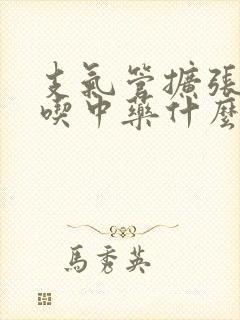 支氣管擴張
喫中藥什麼
馬秀英